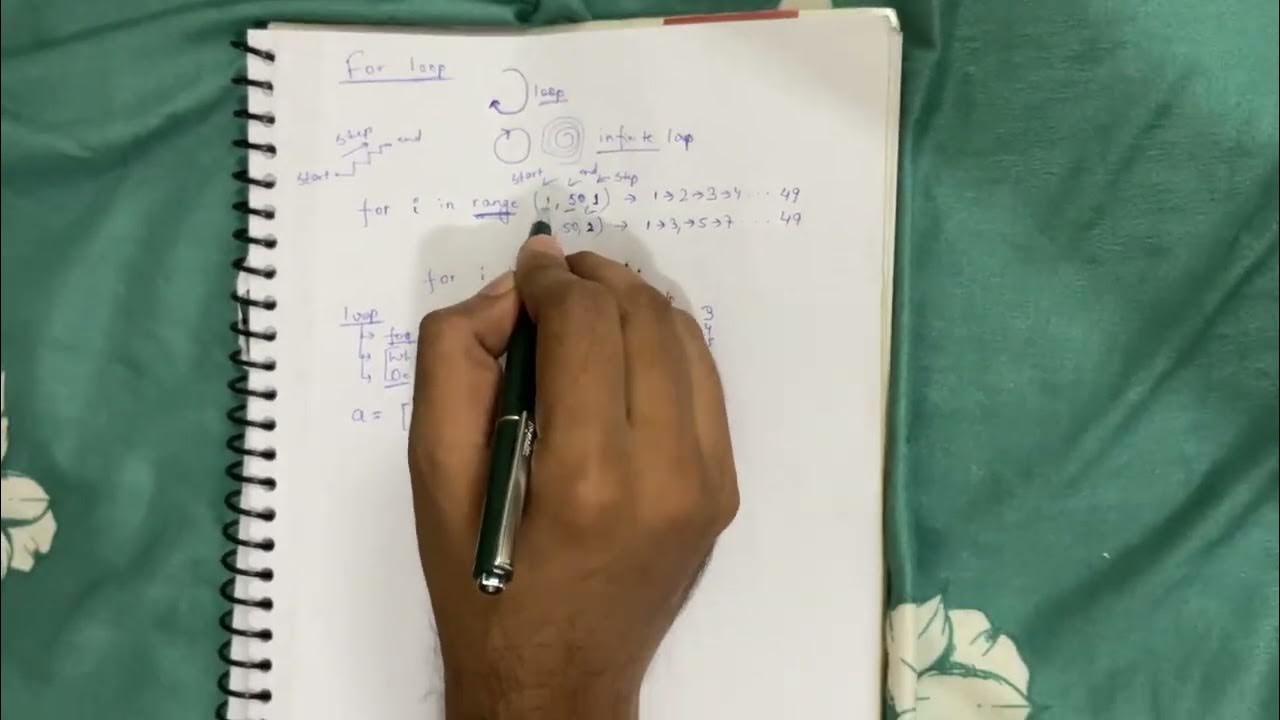 For loop
loop
step
end
start
infinite lap
start end step
for i in range (1, 50,1) → 1→2→3→4 ···· 49
50,2) → 1→3,→5→7 ···· 49
for i
loop
3
→ for
4
a = [